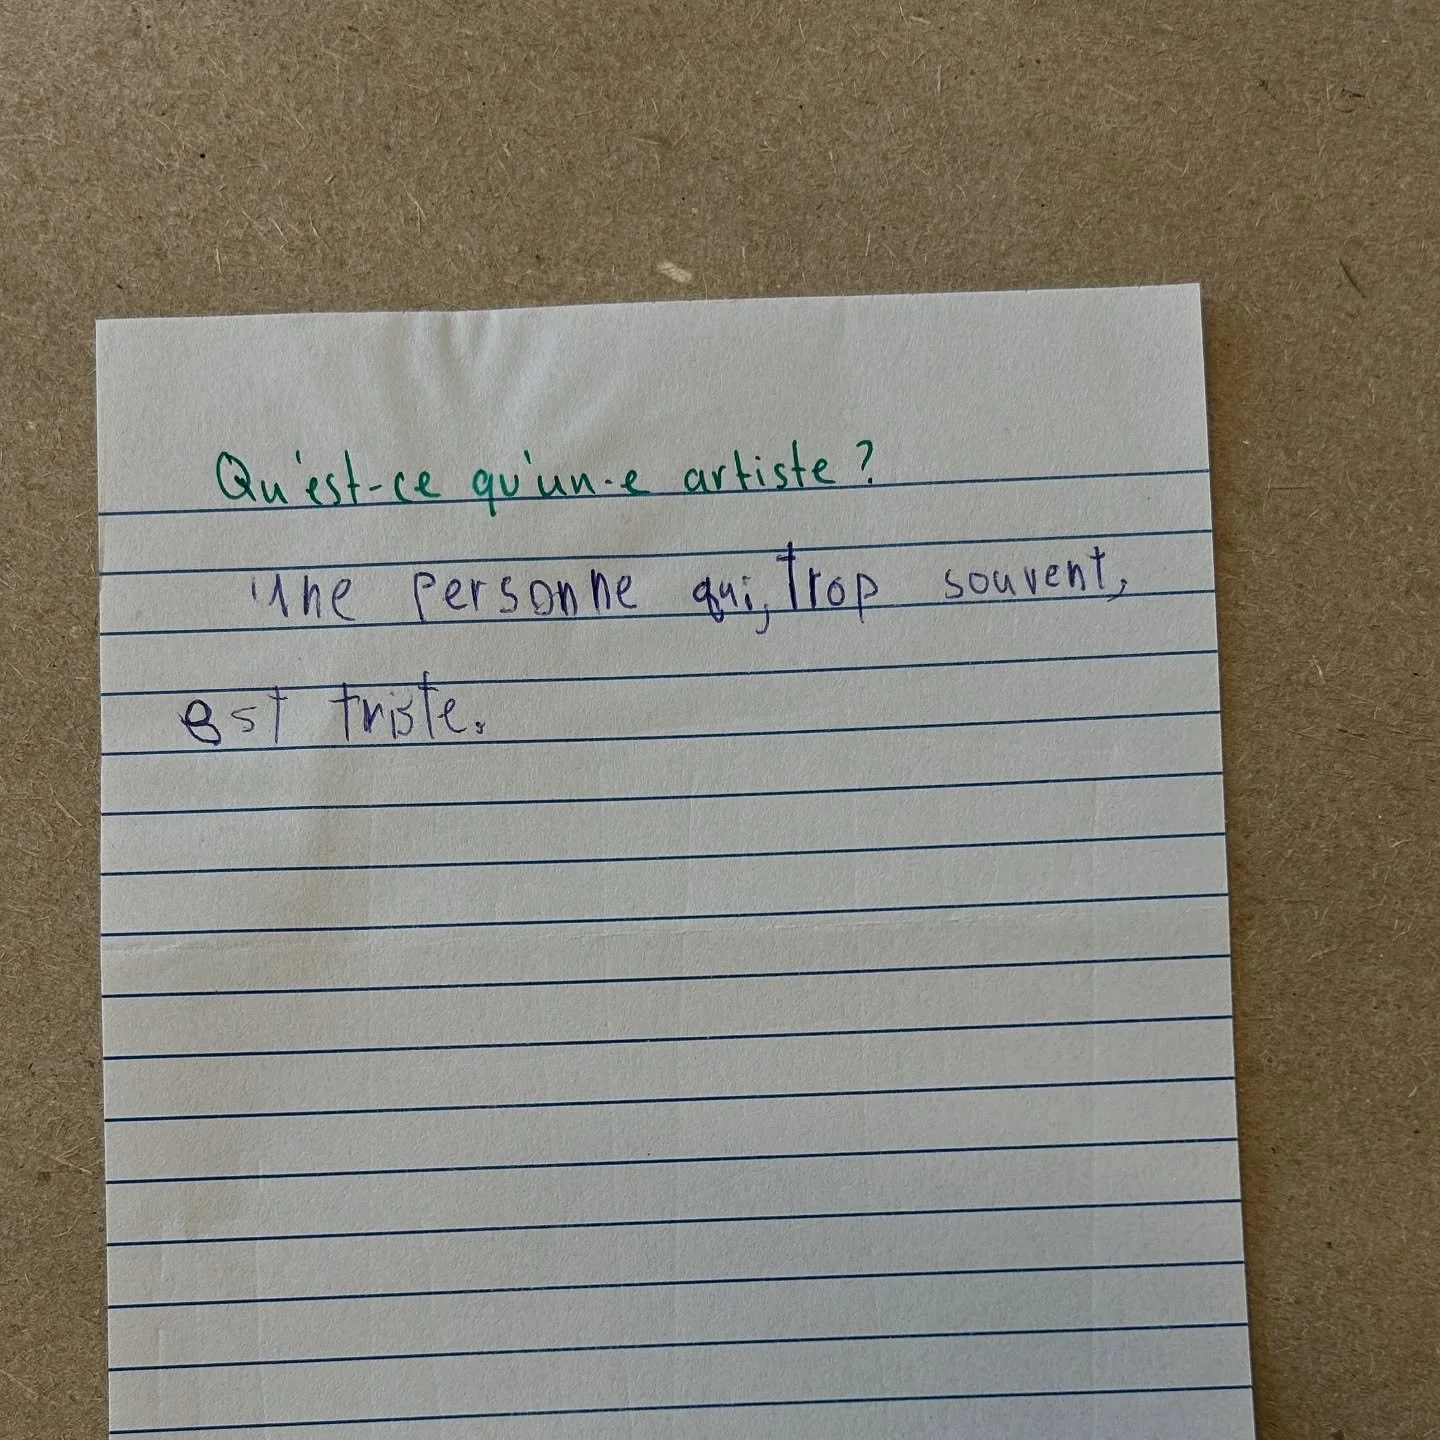 Qu'est-ce qu'un·e artiste ?
Une personne qui, trop souvent,
est triste.